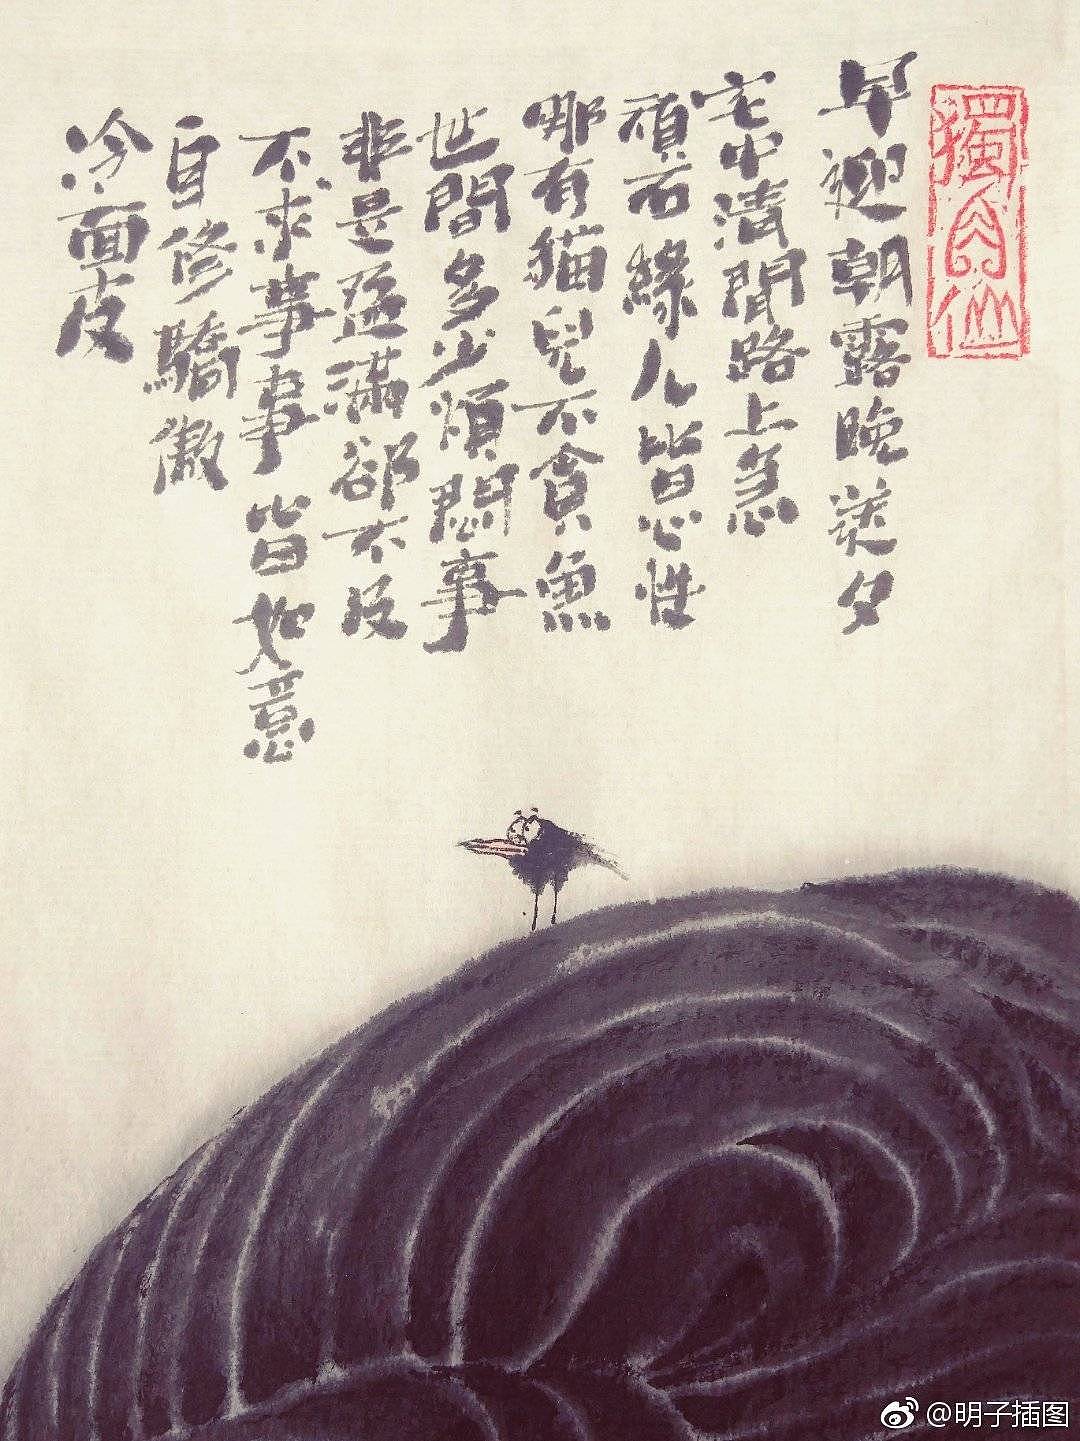 獨仙
早迎朝露晚送夕
宅中清閒路上急
頑石緣人皆心性
哪有貓兒不貪魚
世間多少煩悶事
非是盈滿卻不及
不求事事皆如意
自修驕傲
冷面皮
@明子插图